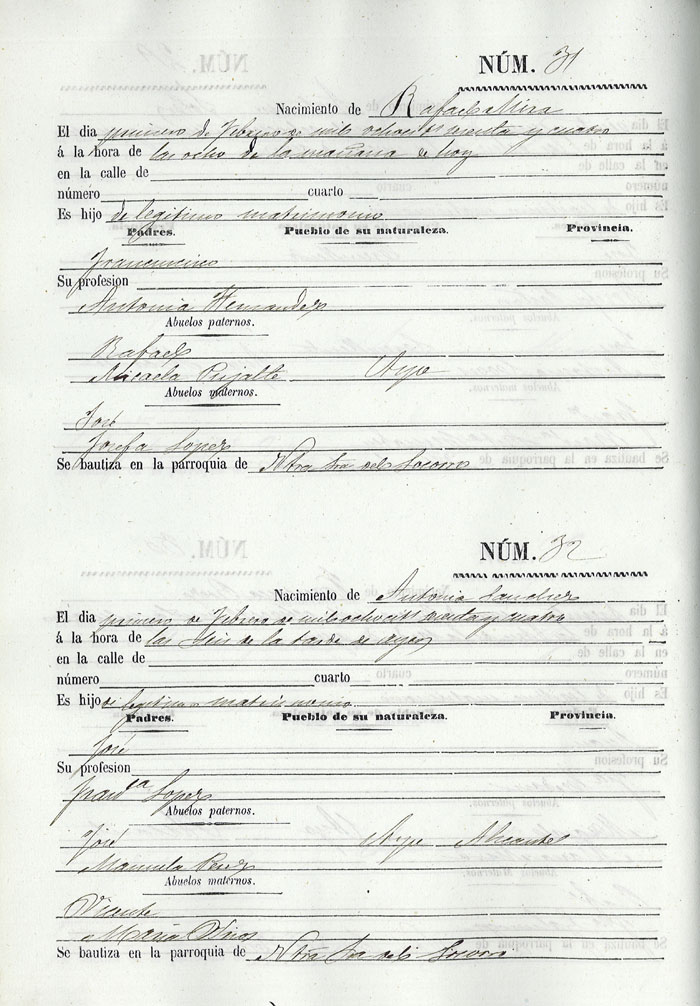 NÚM. 31
Nacimiento de Rafael Mira
El dia primero de Febrero de mil ochocitos senta y cuatro
á la hora de las ocho de la mañana de hoy
en la calle de
número cuarto
Es hijo de legitimo matrimonio
Padres. Pueblo de su naturaleza. Provincia.
Su profesion
Antonia Hernandez
Abuelos paternos.
Rafael
Micaela Pujalte Aspe
Abuelos maternos.
José
Josefa Lopez
Se bautiza en la parroquia de Ntra Sra del Socorro
NÚM. 32
Nacimiento de Antonia Sanchez
El dia primero de Febrero de mil ochocits senta y cuatro
á la hora de las seis de la tarde de ayer
en la calle de
número cuarto
Es hijo de legitimo matrimonio
Padres. Pueblo de su naturaleza. Provincia.
José
Su profesion
Franca Lopez
Abuelos paternos.
José Aspe Alicante
Manuela Perez
Abuelos maternos.
Vicente
Maria
Se bautiza en la parroquia de Ntra Sra del Socorro